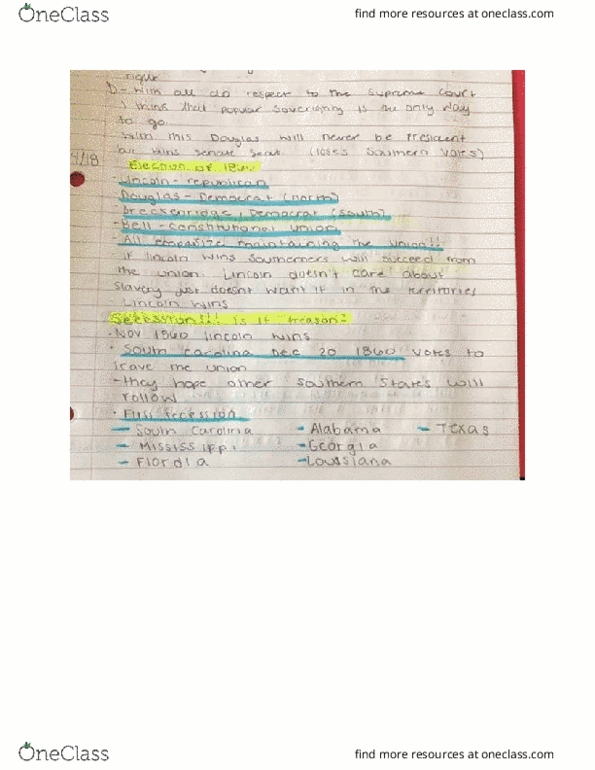 OneClass
find more resources at oneclass.com
right
D- With all do respect to the Supreme Court
I think that popular soverighty is the only way
to go.
With this Douglas will never be President
but wins senate seat. (loses Southern votes)
4/18
Election of 1860
- Lincoln - republican
Douglas - Democrat (north)
Breckenridge, Democrat (South)
- Bell - constitutional union
- All empasize maintaining the union!!
if lincoln wins Southerners will succeed from
the union. Lincoln doesn't care about
slavery just doesnt want it in the territories
Lincoln wins
Secession!!! is it treason?
- Nov 1860 lincoln wins
· South Carolina Dec 20 1860 votes to
leave the union
- they hope other Southern States will
follow
· First secession
- South Carolina - Alabama - Texas
- Mississippi - Georgia
- Flordia - Loussiana
OneClass
find more resources at oneclass.com